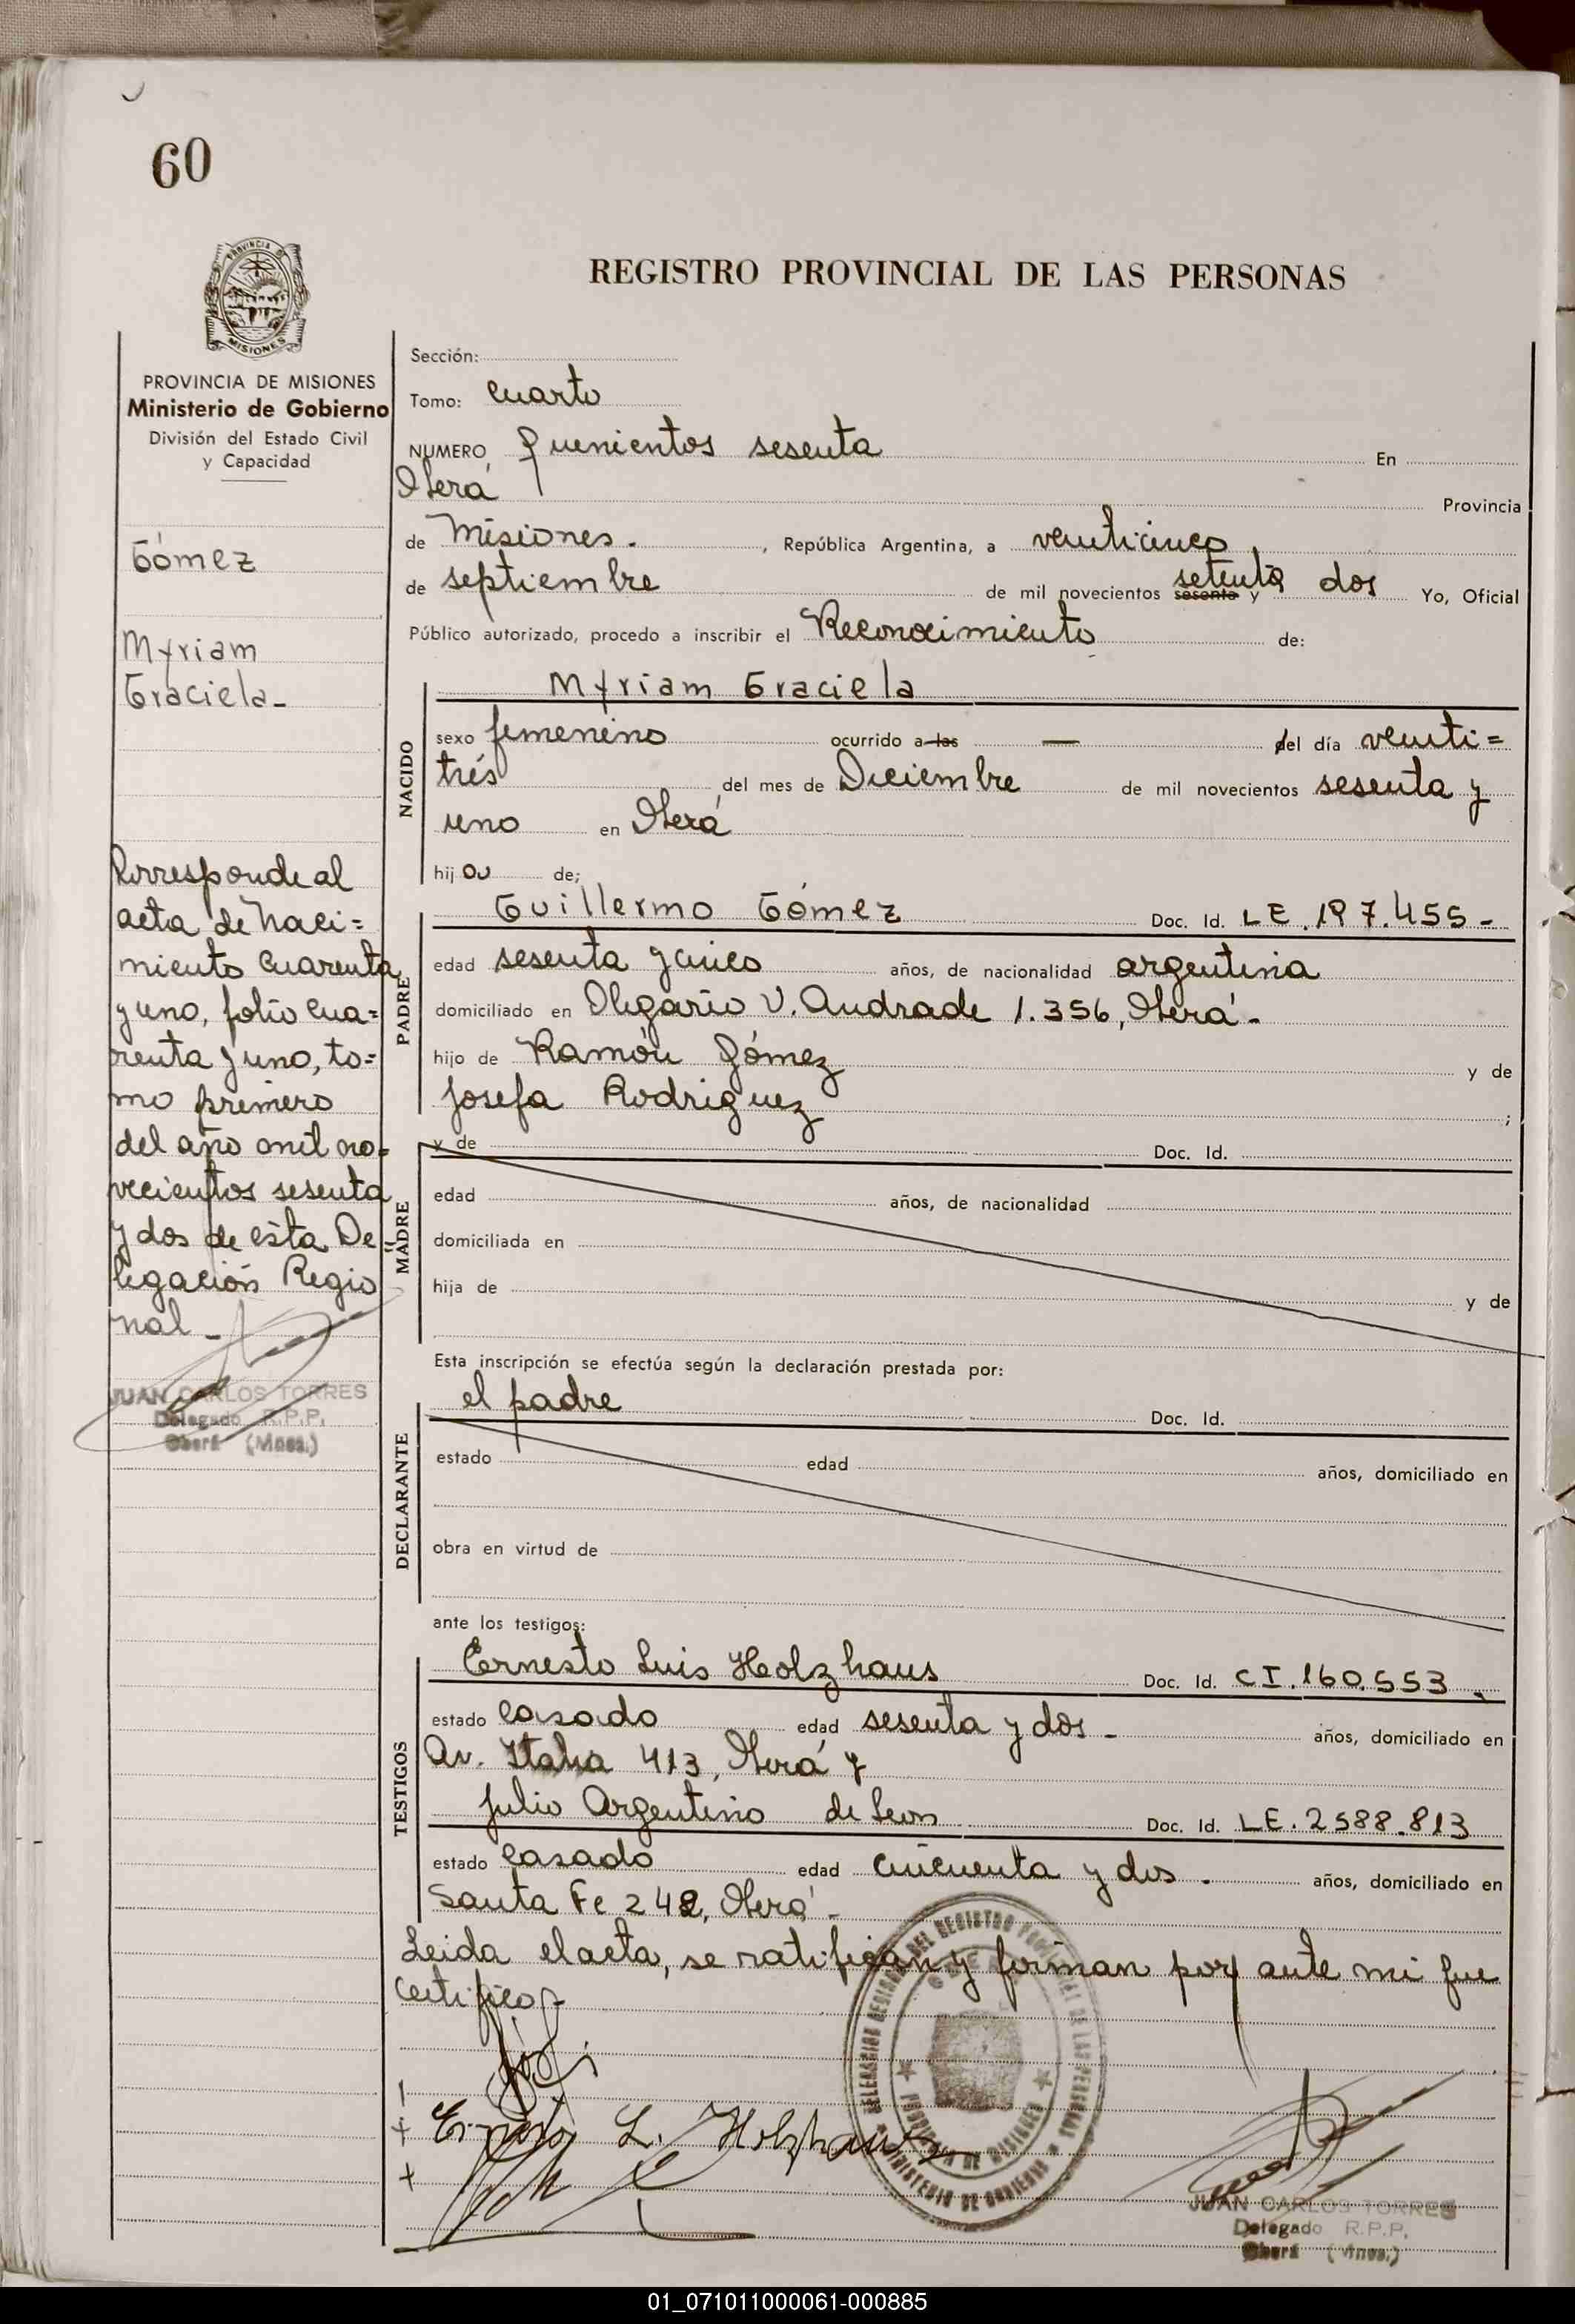 60
PROVINCIA DE MISIONES
Ministerio de Gobierno
División del Estado Civil
y Capacidad
Gómez
Myriam
Graciela-
Corresponde al
acta de Naci=
miento cuarenta
y uno, folio cua=
renta y uno, to=
mo primero
del año mil no=
vecientos sesenta
y dos de esta De
legación Regio
nal-
JUAN CARLOS TORRES
Delegado R.P.P.
Oberá (Mnes.)
REGISTRO PROVINCIAL DE LAS PERSONAS
Sección:
Tomo: Cuarto
NUMERO Quinientos sesenta En
Oberá Provincia
de Misiones. , República Argentina, a veinticinco
de septiembre de mil novecientos sesenta setenta y dos Yo, Oficial
Público autorizado, procedo a inscribir el Reconocimiento de:
NACIDO
Myriam Graciela
sexo femenino ocurrido a las — del día veinti=
trés del mes de Diciembre de mil novecientos sesenta y
uno en Oberá
hij a de;
PADRE
Guillermo Gómez Doc. Id. LE. 197.455-
edad sesenta y cinco años, de nacionalidad argentina
domiciliado en Olegario V. Andrade 1.356, Oberá-
hijo de Ramón Gómez y de
Josefa Rodriguez ;
MADRE
y de Doc. Id.
edad años, de nacionalidad
domiciliada en
hija de y de
Esta inscripción se efectúa según la declaración prestada por:
DECLARANTE
el padre Doc. Id.
estado edad años, domiciliado en
obra en virtud de
ante los testigos:
TESTIGOS
Ernesto Luis Holzhaus Doc. Id. CI. 160.553.
estado casado edad sesenta y dos- años, domiciliado en
Av. Italia 413, Oberá y
Julio Argentino de Leon Doc. Id. LE. 2588.813
estado casado edad cincuenta y dos. años, domiciliado en
Santa Fe 242, Oberá-
Leida el acta, se ratifican y firman por ante mi que
certifico-
Ernesto L. Holzhaus
JUAN CARLOS TORRES
Delegado R.P.P.
Oberá (Mnes.)
01_071011000061-000885